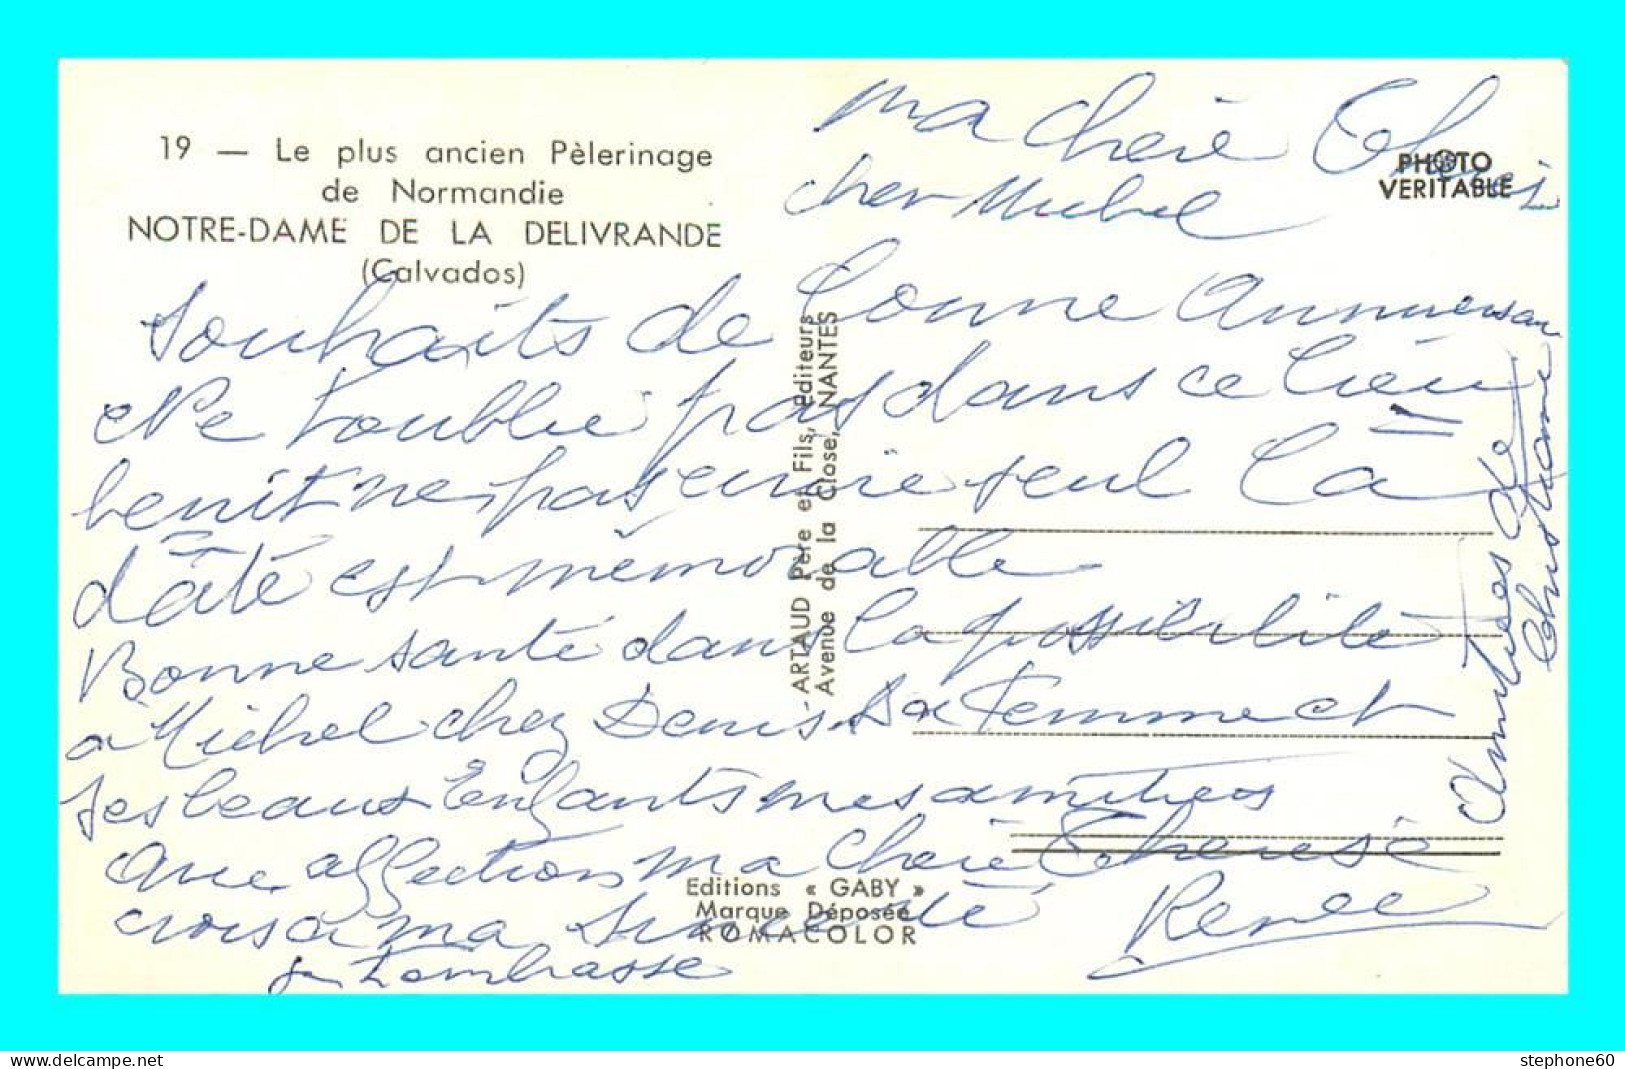 19 — Le plus ancien Pèlerinage
de Normandie
NOTRE-DAME DE LA DELIVRANDE
(Calvados)
PHOTO
VERITABLE
ma chère
cher Michel
Souhaits de bonne
Ne t'oublie pas dans ce lieu
benit ne pas seul La
dâte est mémorable
Bonne santé dans la possibilité
a Michel chez Denis sa femme et
ses beaux Enfants mes amities
Avec affection ma Chère Therese
crois a ma sincerité
je t'embrasse
Renée
Amities de
Christiane
ARTAUD Père et Fils, Editeurs
Avenue de la Close, NANTES
Editions « GABY »
Marque Déposée
ROMACOLOR
stephone60